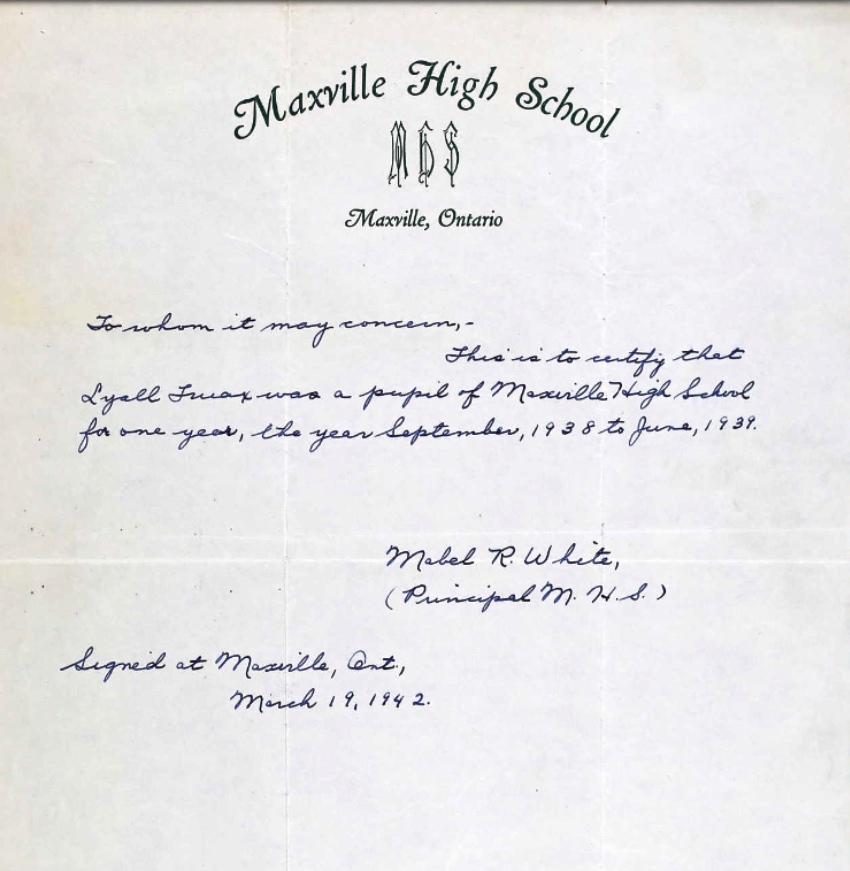 Maxville High School
MHS
Maxville, Ontario
To whom it may concern,-
This is to certify that
Lyall was a pupil of Maxville High School
for one year, the year September, 1938 to June, 1939.
Mabel R. White,
(Principal M. H. S.)
Signed at Maxville, Ont.,
March 19, 1942.